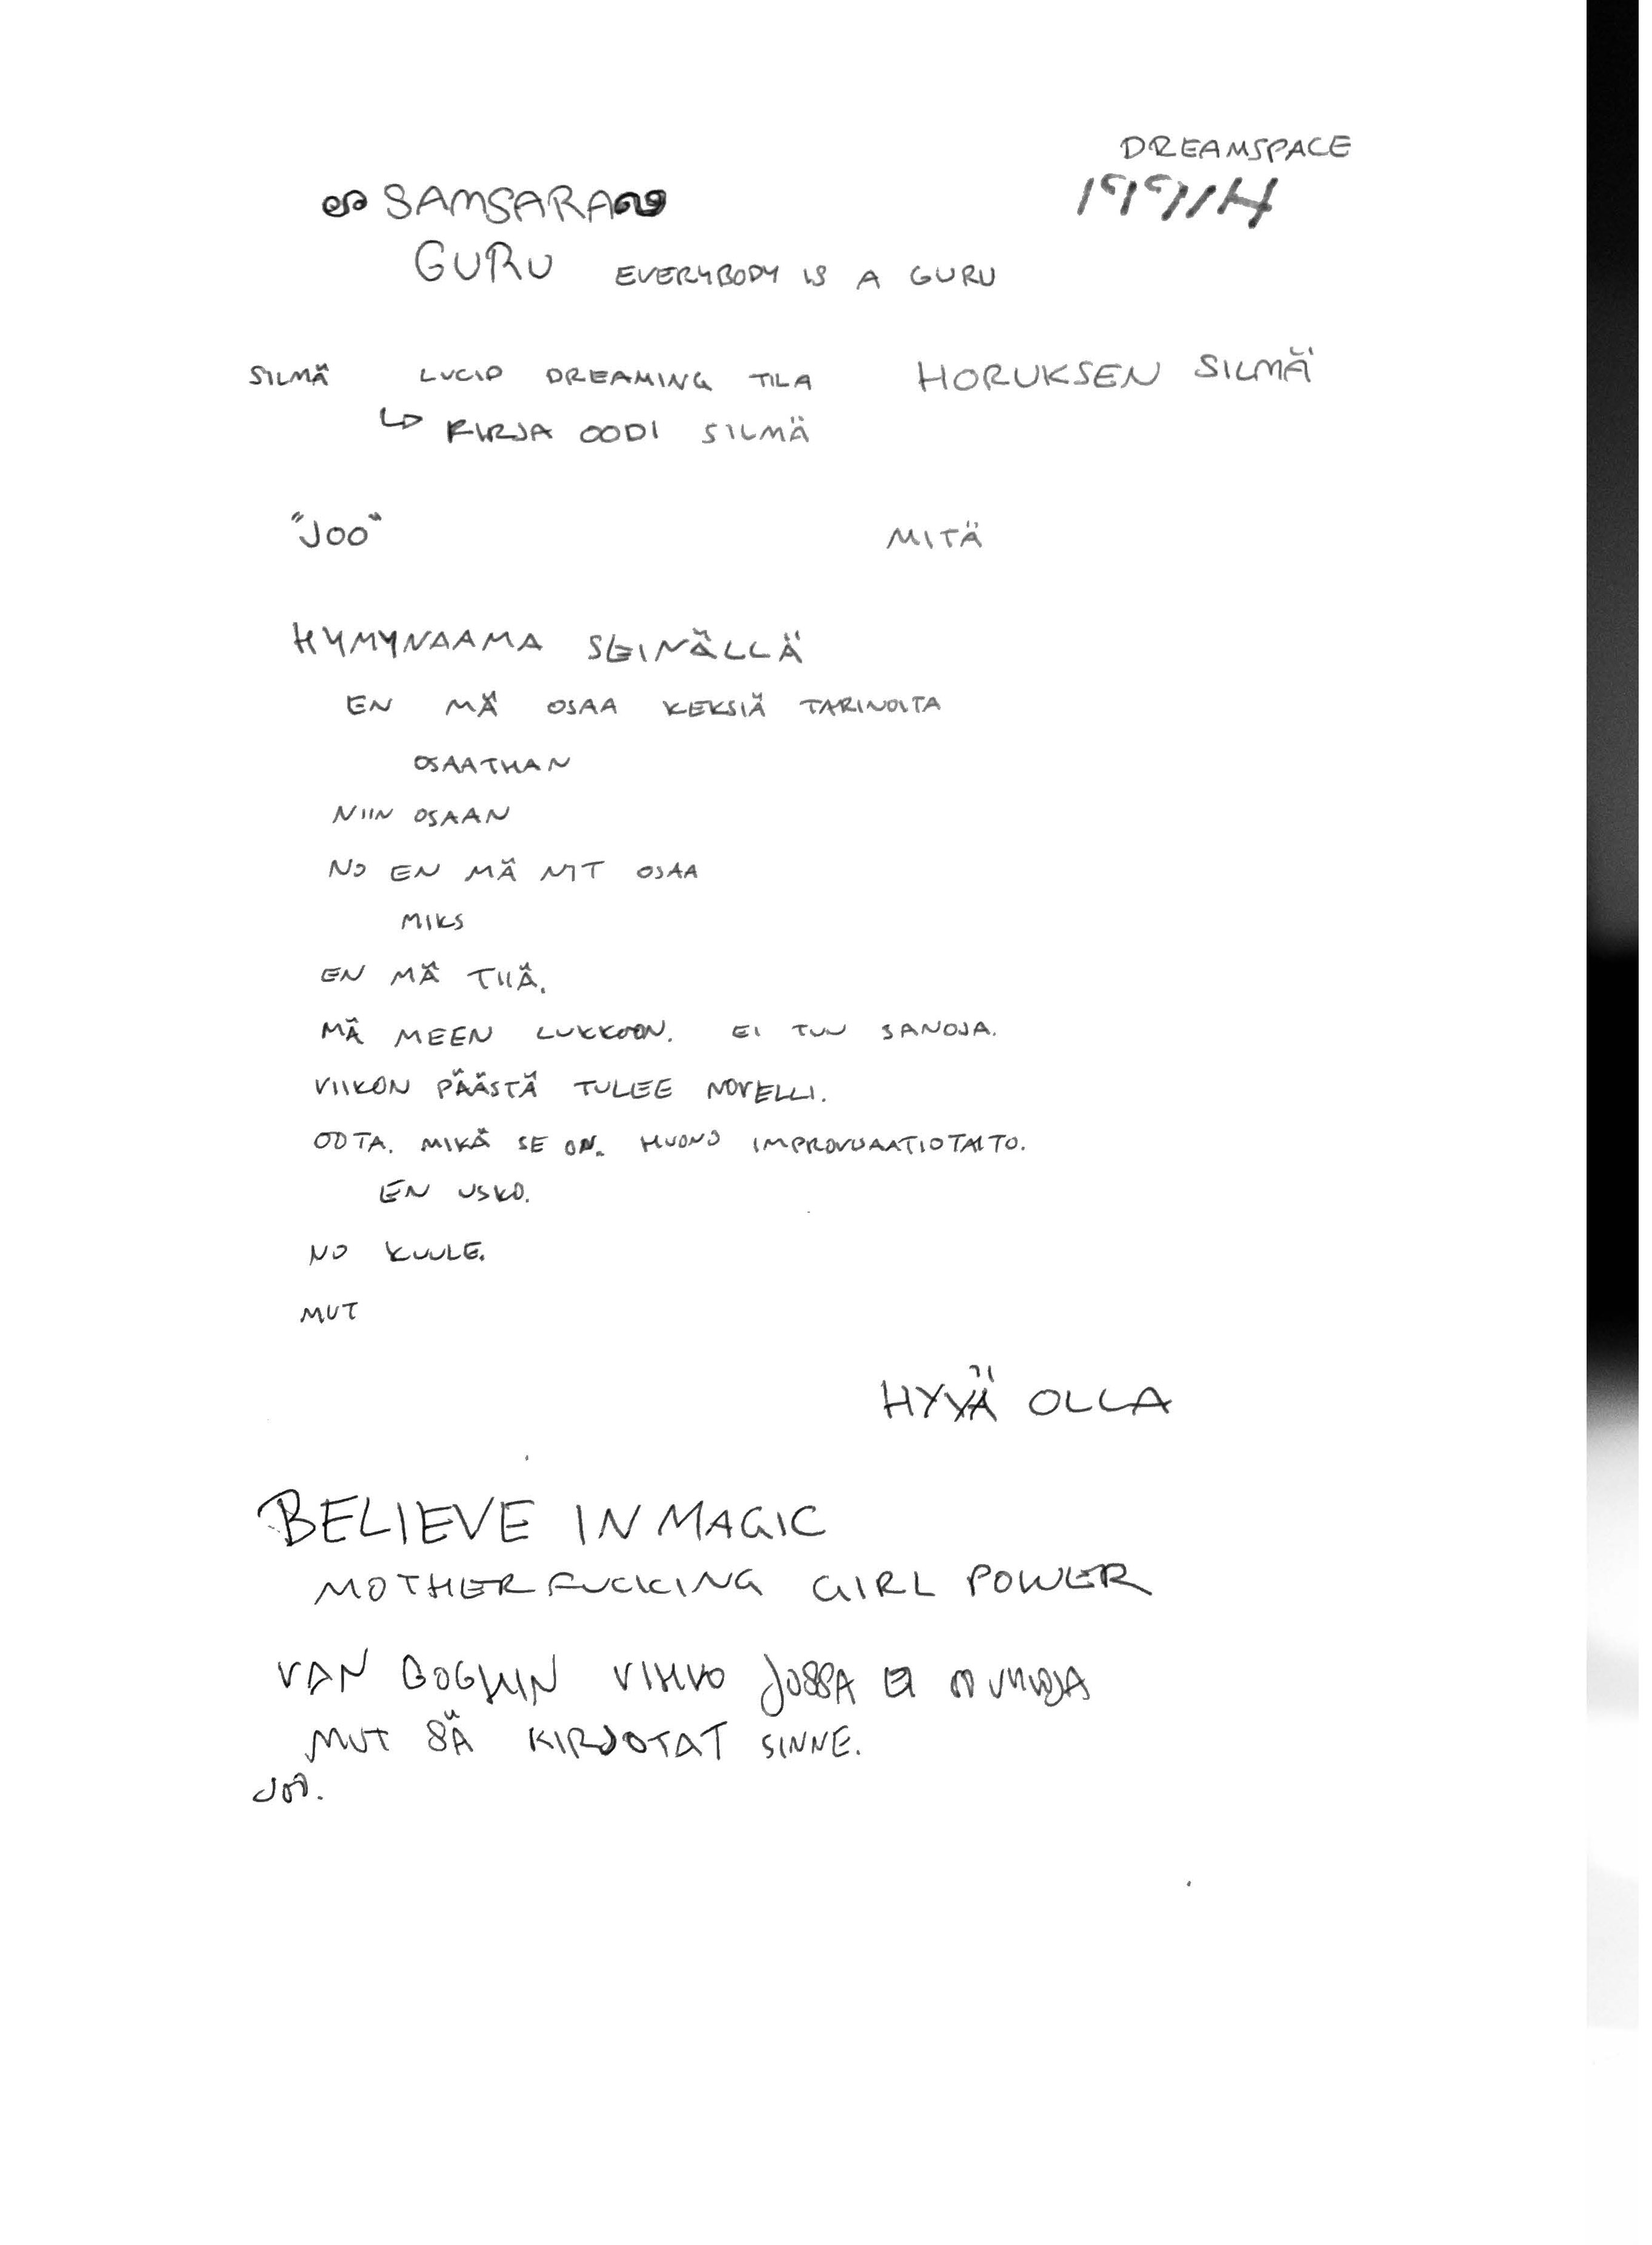 DREAMSPACE
SAMSARA
GURU EVERYBODY IS A GURU
SILMÄ LUCID DREAMING TILA HORUKSEN SILMÄ
KIRJA OODI SILMÄ
"JOO" MITÄ
HYMYNAAMA SEINÄLLÄ
EN MÄ OSAA KEKSIÄ TARINOITA
OSAATHAN
NIIN OSAAN
NO EN MÄ NYT OSAA
MIKS
EN MÄ TIIÄ.
MÄ MEEN LUKKOON. EI TUU SANOJA.
VIIKON PÄÄSTÄ TULEE NOVELLI.
ODTA. MIKÄ SE ON. HUONO IMPROVISAATIOTAITO.
EN USKO.
NO KUULE.
MUT
HYVÄ OLLA
BELIEVE IN MAGIC
MOTHERFUCKING GIRL POWER
VAN GOGHIN VIHKO JOSSA EI
MUT SÄ KIRJOTAT SINNE.
JOO.